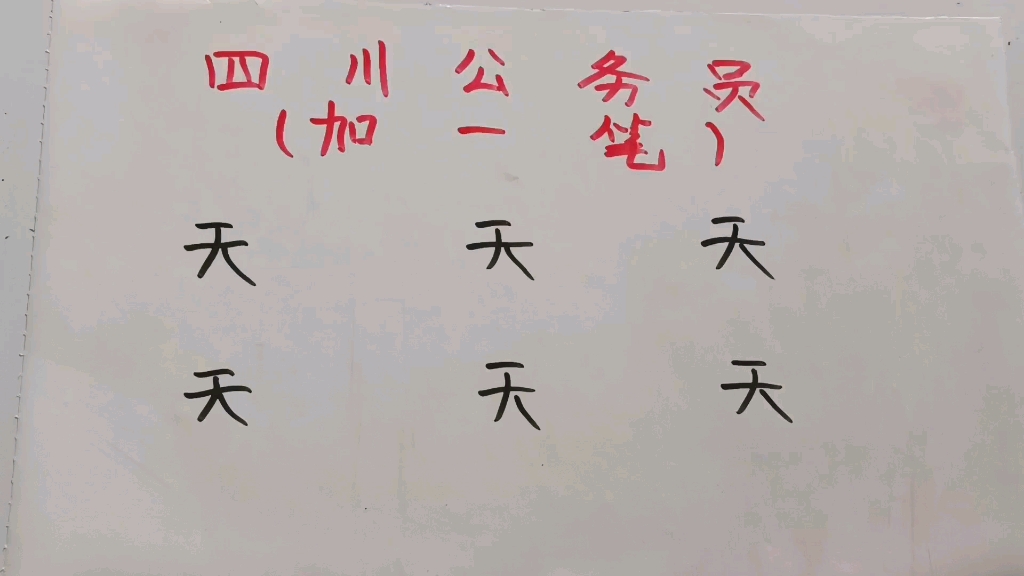 四川公务员
(加一笔)
天 天 天
天 天 天